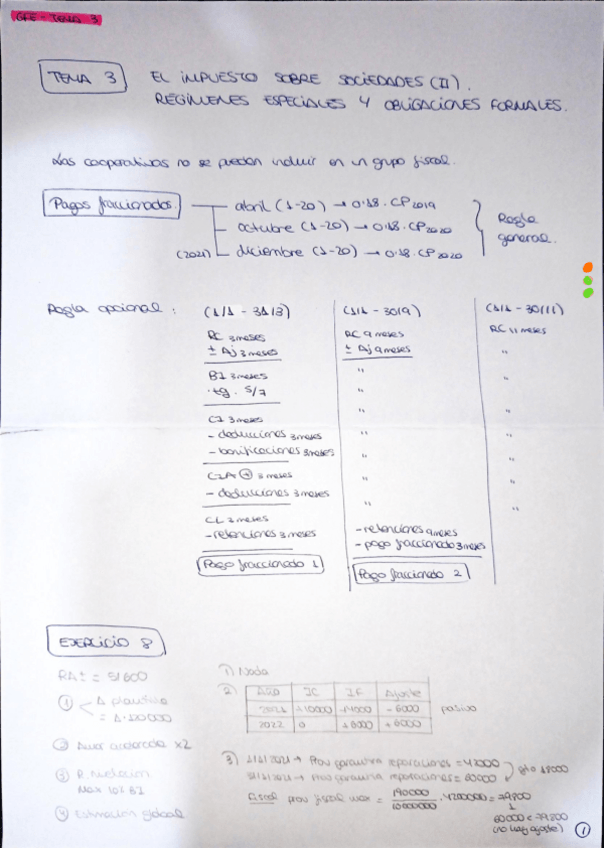 GFE - TEMA 3
TEMA 3 EL IMPUESTO SOBRE SOCIEDADES (II).
REGÍMENES ESPECIALES Y OBLIGACIONES FORMALES.
Las cooperativas no se pueden incluir en un grupo fiscal.
Pagos fraccionados abril (1-20) → 0'18. CP2019
octubre (1-20) → 0'18. CP2020
(2021) diciembre (1-20) → 0'18. CP2020
Regla general.
Regla opcional: (1/1 - 31/3) (1/1 - 30/9) (1/1 - 30/11)
RC 3meses RC 9 meses RC 11 meses
± Aj 3meses ± Aj 9meses "
BI 3meses " "
· tg. 5/7 "
CI 3meses " "
- deducciones 3meses " "
- bonificaciones 3meses " "
CIA ⊕ 3 meses " "
- deducciones 3meses " "
CL 3meses
- retenciones 3meses - retenciones 9meses
- pago fraccionado 3meses
Pago fraccionado 1 Pago fraccionado 2
EJERCICIO 8
1) Nada
2) AÑO IC IF Ajuste
2021 -6000 pasivo
2022 0 +6000 +6000
② Amor acelerada x2
Max 10% BI
④ Estimación global
3) 1/1/2021 → Prov garantía reparaciones = 42000
31/1/2021 → Prov garantía reparaciones = 60000
gto 18000
Fiscal prov fiscal max = 190000/10000000 · 4200000 = 79800
60000 < 79800
(no hay ajuste) ①